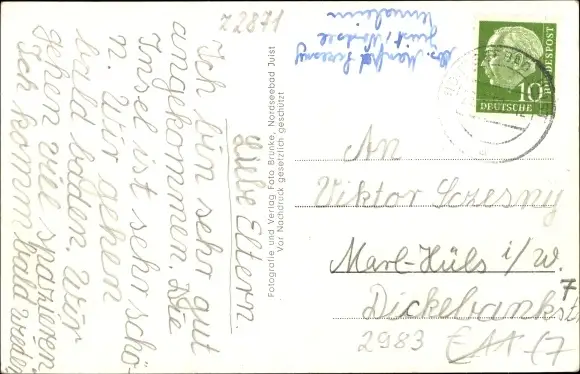 Liebe Eltern.
Ich bin sehr gut
angekommen. Die
Insel ist sehr schö-
n. Wir gehen
bald baden. Wir
gehen viel spazieren.
Ich komm bald wieder.
Z2871
Fotografie und Verlag Foto Brunke, Nordseebad Juist
Vor Nachdruck gesetzlich geschützt
Manfred Sczesny
Juist
DEUTSCHE
BUNDESPOST
10
An
Viktor Sczesny
Marl-Hüls i/W.
Dickebankst
7
2983